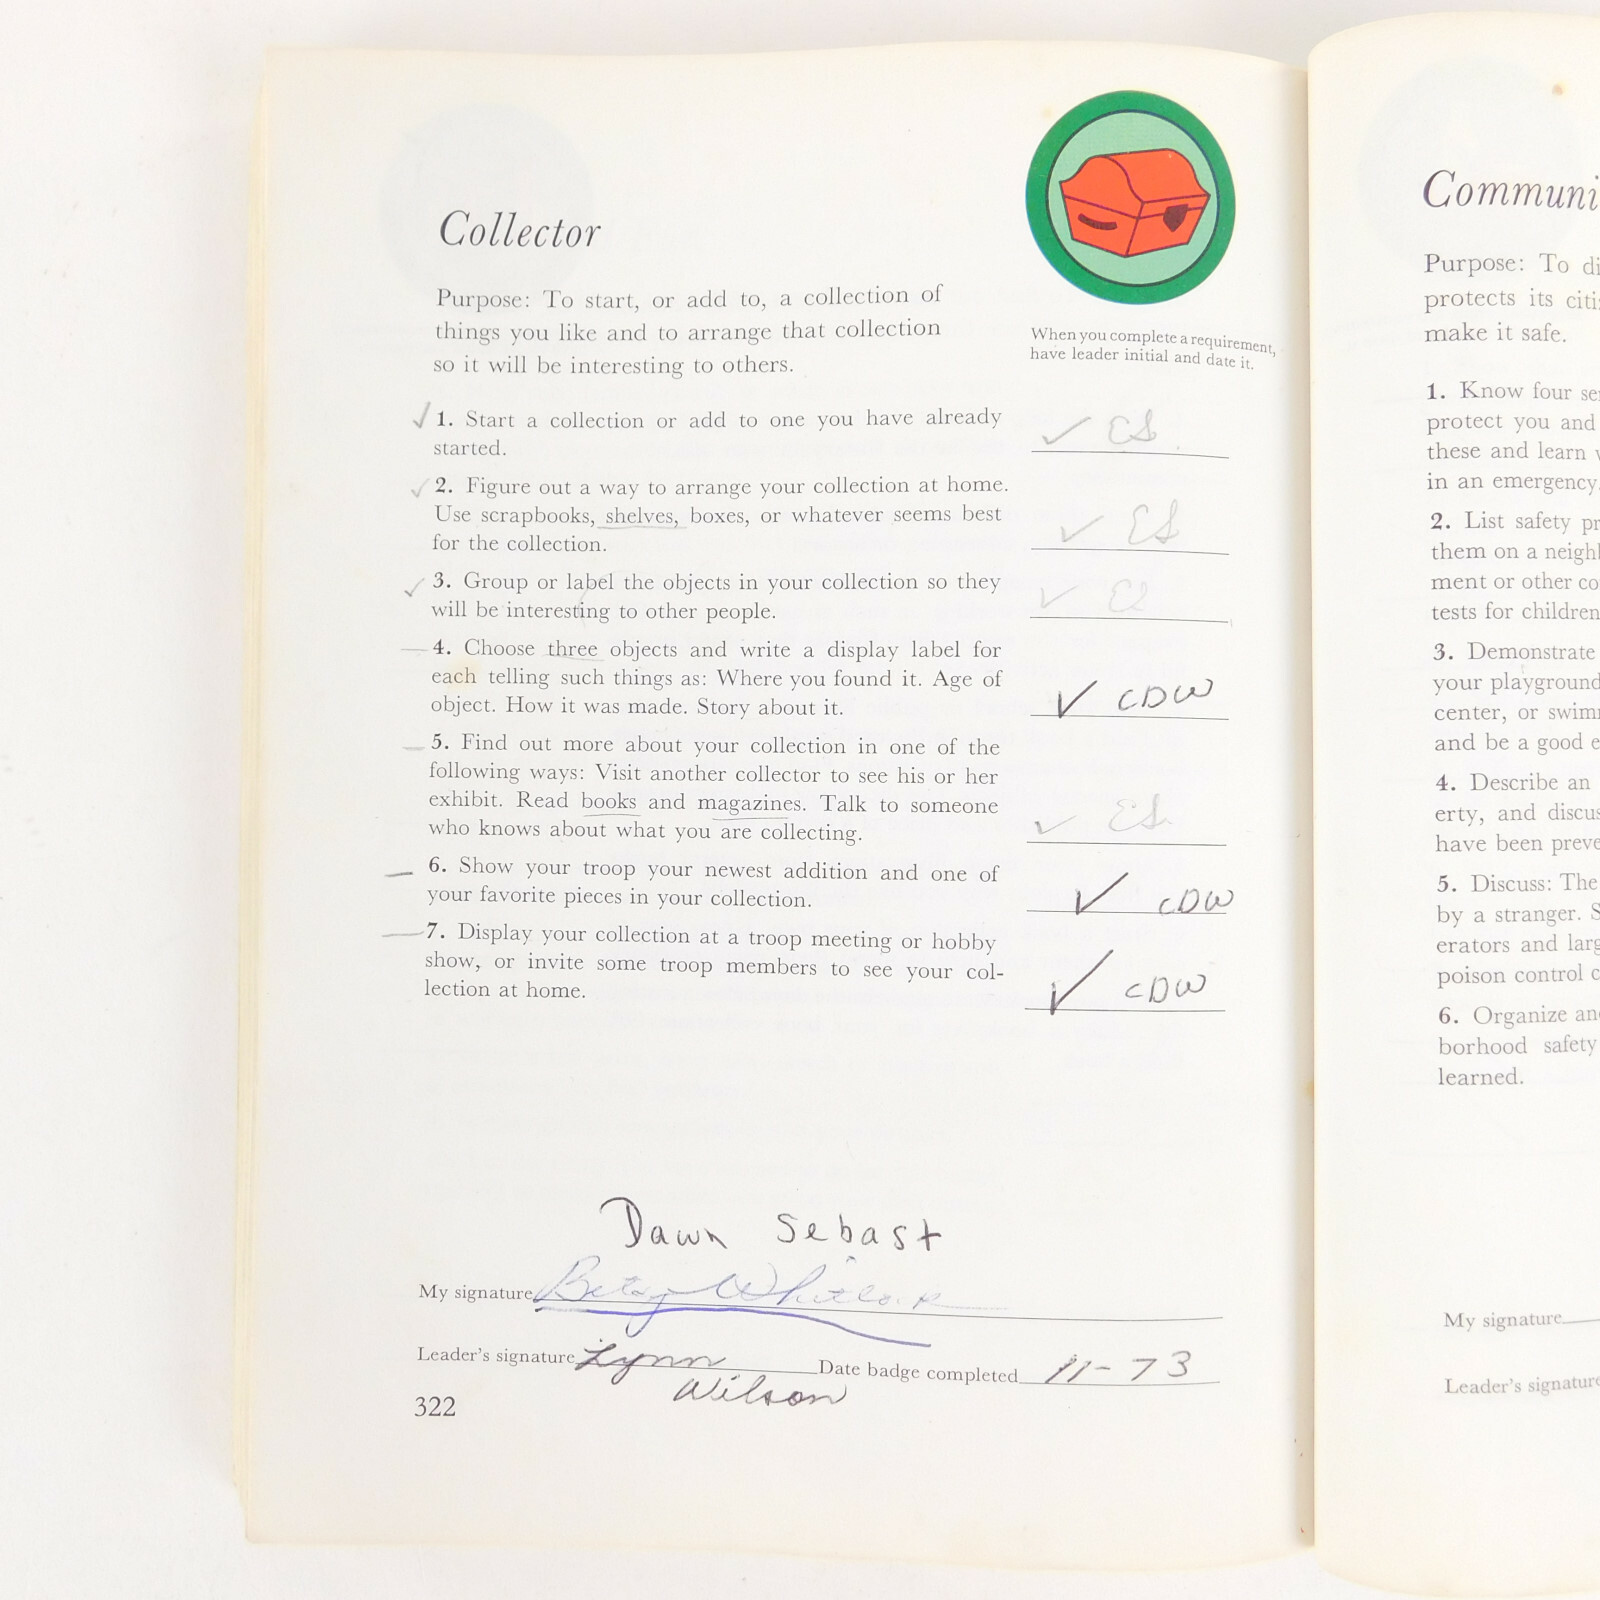 Collector
Purpose: To start, or add to, a collection of
things you like and to arrange that collection
so it will be interesting to others.
When you complete a requirement,
have leader initial and date it.
✓ 1. Start a collection or add to one you have already
started.
✓ ES
✓ 2. Figure out a way to arrange your collection at home.
Use scrapbooks, shelves, boxes, or whatever seems best
for the collection.
✓ ES
✓ 3. Group or label the objects in your collection so they
will be interesting to other people.
✓
— 4. Choose three objects and write a display label for
each telling such things as: Where you found it. Age of
object. How it was made. Story about it.
✓ CDW
— 5. Find out more about your collection in one of the
following ways: Visit another collector to see his or her
exhibit. Read books and magazines. Talk to someone
who knows about what you are collecting.
✓ ES
— 6. Show your troop your newest addition and one of
your favorite pieces in your collection.
✓ CDW
— 7. Display your collection at a troop meeting or hobby
show, or invite some troop members to see your col-
lection at home.
✓ CDW
Dawn Sebast
My signature Betsy
Leader's signature Lynn Wilson Date badge completed 11-73
322
Communi
Purpose: To di
protects its citi
make it safe.
1. Know four se
protect you and
these and learn
in an emergency,
2. List safety pr
them on a neigh
ment or other co
tests for children
3. Demonstrate
your playground
center, or swim
and be a good e
4. Describe an
erty, and discus
have been preve
5. Discuss: The
by a stranger. S
erators and larg
poison control c
6. Organize an
borhood safety
learned.
My signature
Leader's signature